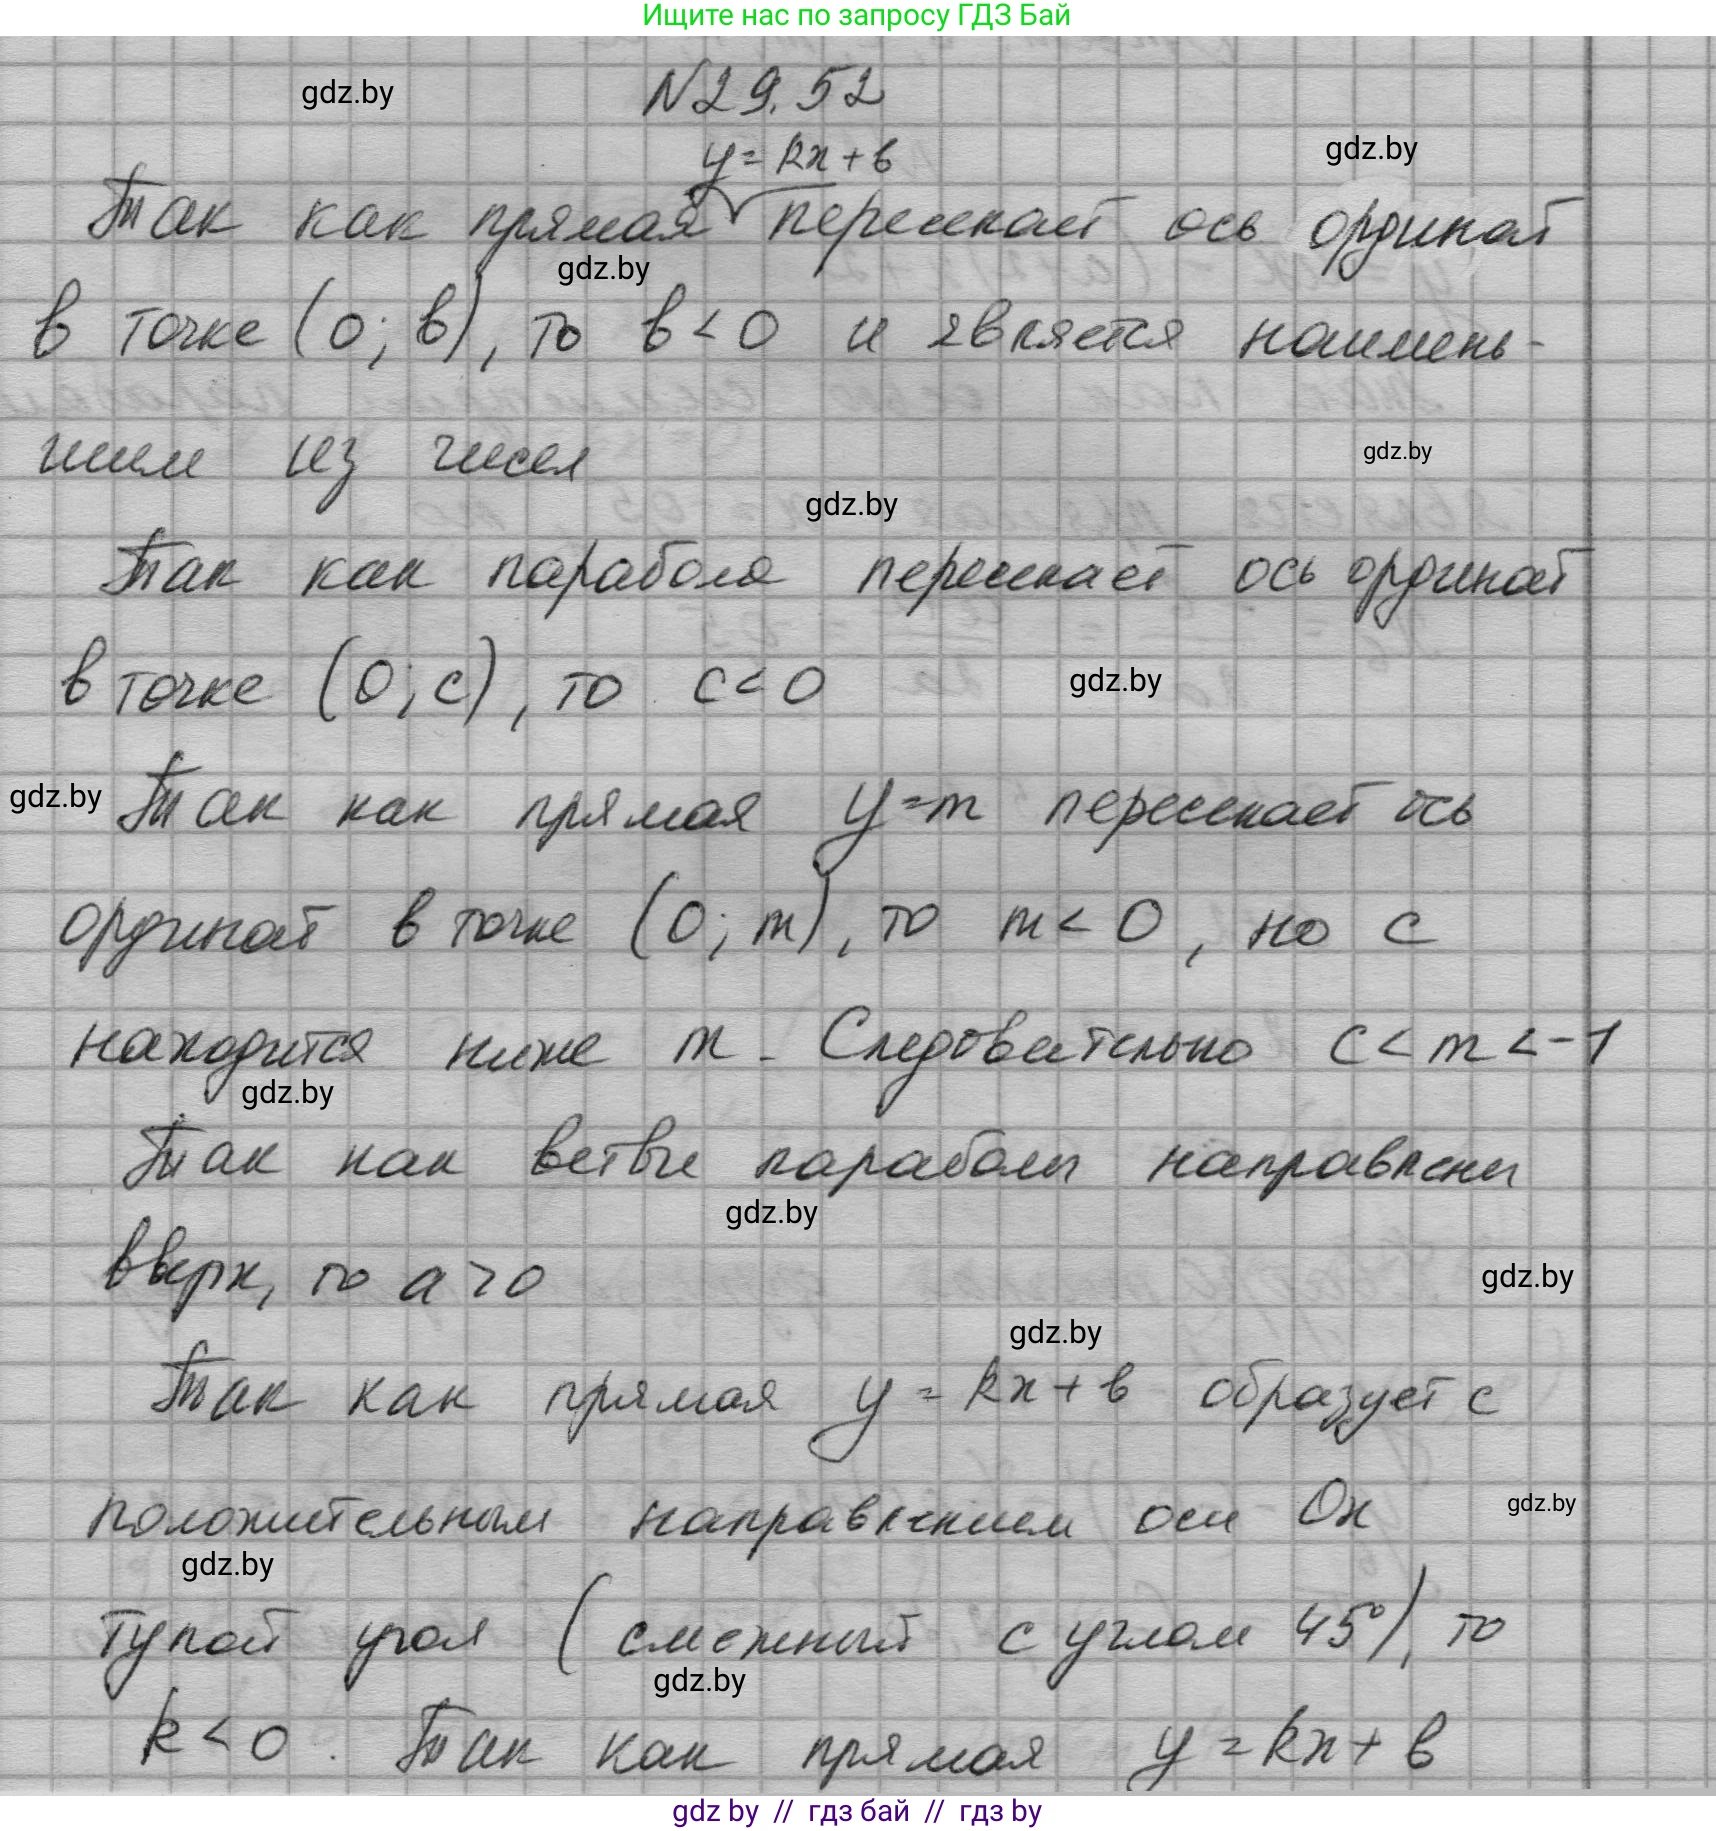 Ищите нас по запросу ГДЗ Бай
gdz.by
N29.52
y=kx+b
gdz.by
Так как прямая пересекает ось ординат
gdz.by
в точке (0; b), то b<0 и является наимень-
шим из чисел
gdz.by
gdz.by
Так как парабола пересекает ось ординат
в точке (0; c), то c<0
gdz.by
gdz.by
Так как прямая y=m пересекает ось
ординат в точке (0; m), то m<0, но c
находится ниже m. Следовательно c<m<-1
gdz.by
Так как ветви параболы направлены
gdz.by
вверх, то a>0
gdz.by
gdz.by
Так как прямая y=kx+b образует с
положительным направлением оси Ox
gdz.by
gdz.by
тупой угол (смежный с углом 45°), то
gdz.by
k<0. Так как прямая y=kx+b
gdz by // гдз бай // гдз by